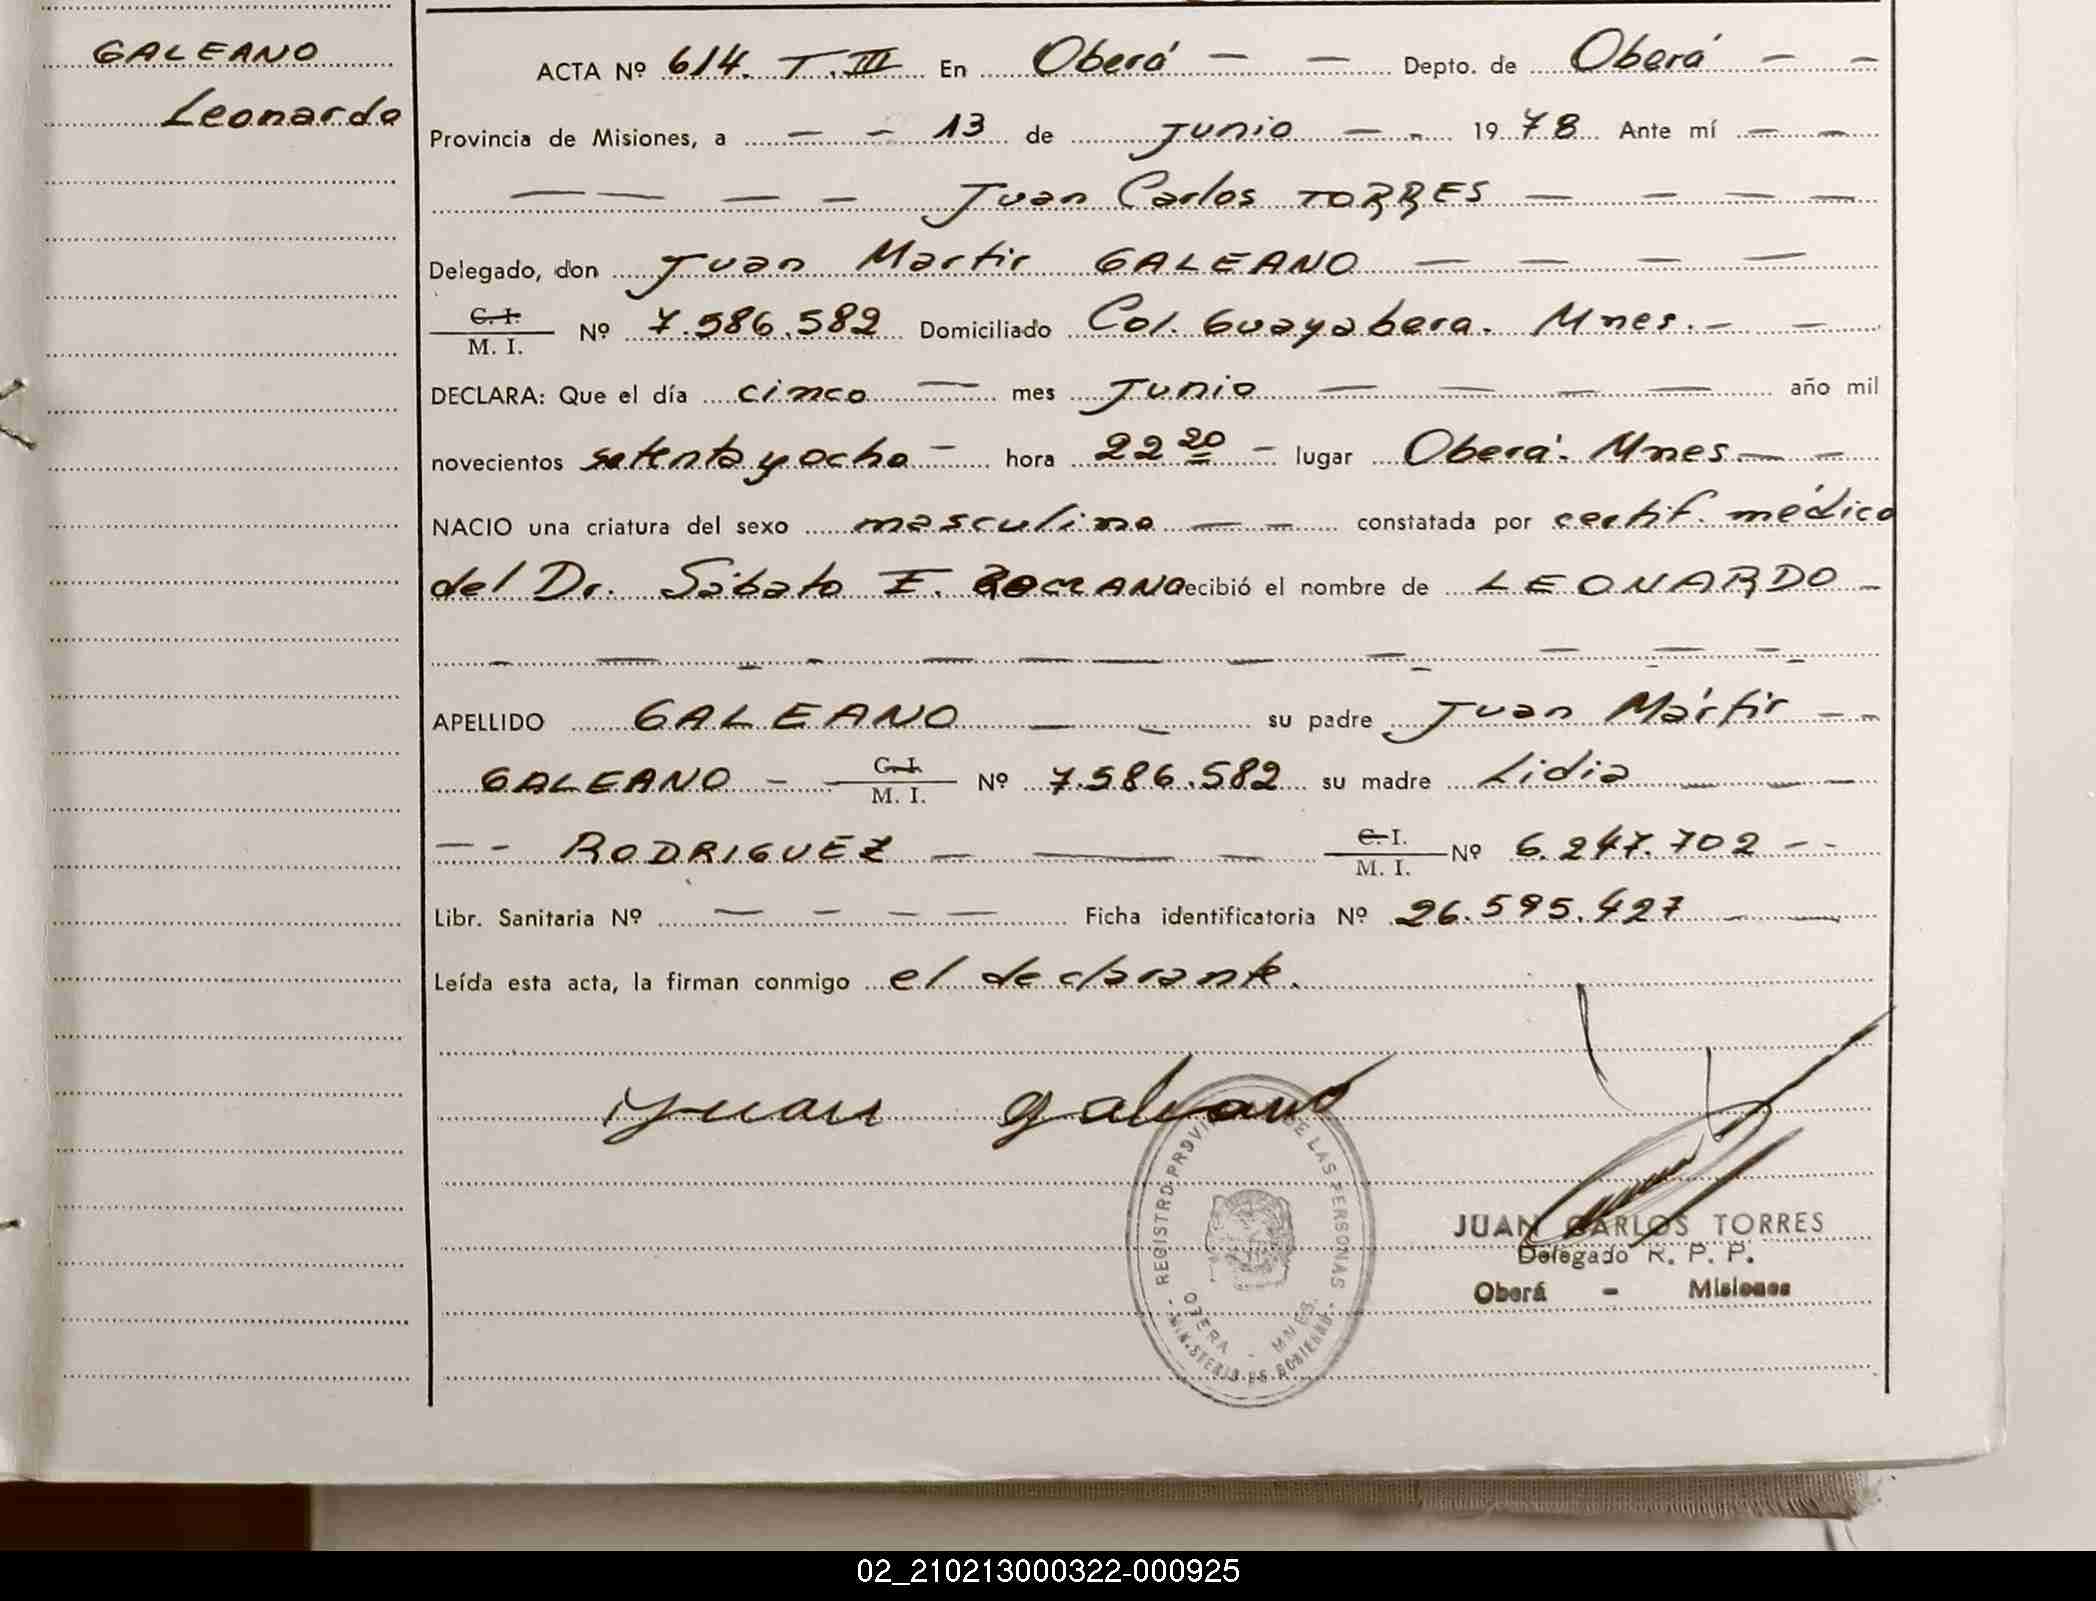 GALEANO
Leonardo
ACTA Nº 614. T. III En Oberá — — Depto. de Oberá — —
Provincia de Misiones, a — — 13 de Junio — - 1978 Ante mí — —
— — — — Juan Carlos TORRES — — — —
Delegado, don Juan Martir GALEANO — — — —
C. I.
M. I. Nº 7.586.582 Domiciliado Col. Guayabera. Mnes. - —
DECLARA: Que el día cinco — mes Junio — — — — año mil
novecientos setenta y ocho — hora 22 20 — lugar Oberá. Mnes — —
NACIO una criatura del sexo masculino — — constatada por certif. médico
del Dr. Sábato F. ecibió el nombre de LEONARDO —
APELLIDO GALEANO — — su padre Juan Mártir — -
GALEANO - C. I. Nº 7.586.582 su madre Lidia — — —
M. I.
— - RODRIGUEZ — — — C. I. Nº 6.247.702 - -
M. I.
Libr. Sanitaria Nº — — — — Ficha identificatoria Nº 26.595.427 — —
Leída esta acta, la firman conmigo el declarante.
Juan Galeano
REGISTRO PROVINCIAL DE LAS PERSONAS
OBERA - MNES.
MINISTERIO DE GOBIERNO
JUAN CARLOS TORRES
Delegado R. P. P.
Oberá - Misiones
02_210213000322-000925